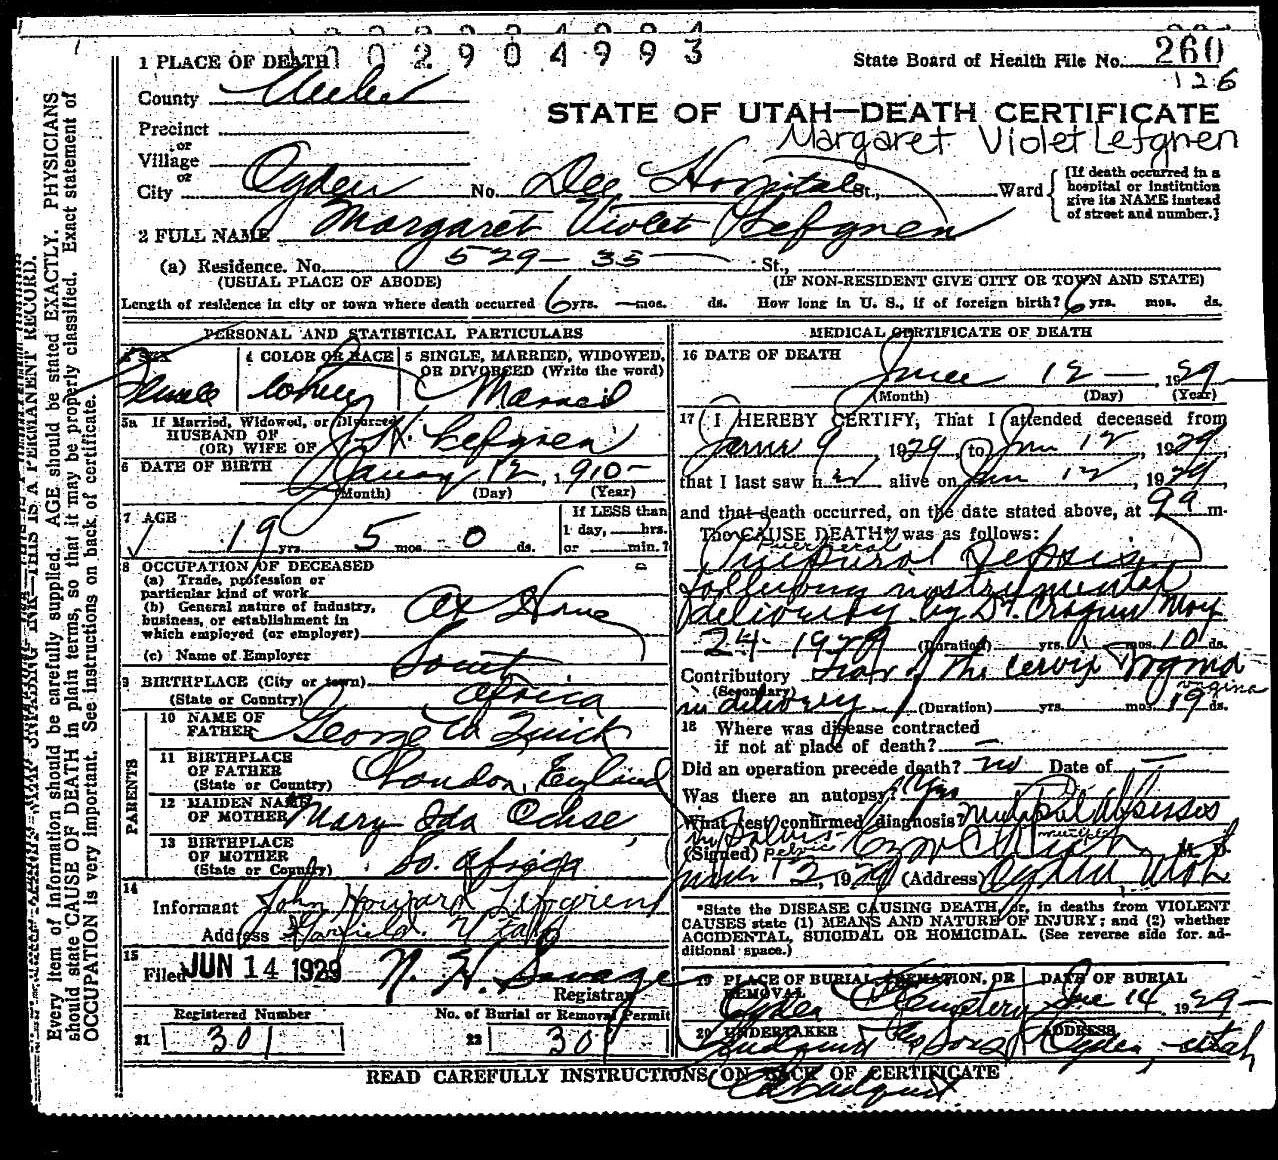 1002904993
1 PLACE OF DEATH
State Board of Health File No. 260
126
County Weber
STATE OF UTAH—DEATH CERTIFICATE
Precinct
Margaret Violet Lefgren
or
Village
or
City Ogden No. Dee Hospital St., Ward
[If death occurred in a
hospital or institution
give its NAME instead
of street and number.]
2 FULL NAME Margaret Violet Lefgren
(a) Residence. No. 529 - 35 St.,
(USUAL PLACE OF ABODE) (IF NON-RESIDENT GIVE CITY OR TOWN AND STATE)
Length of residence in city or town where death occurred 6 yrs. — mos. ds. How long in U. S., if of foreign birth? 6 yrs. mos. ds.
PERSONAL AND STATISTICAL PARTICULARS
3 SEX 4 COLOR OR RACE 5 SINGLE, MARRIED, WIDOWED,
OR DIVORCED (Write the word)
Female White Married
5a If Married, Widowed, or Divorced
HUSBAND OF
(OR) WIFE OF J. H. Lefgren
6 DATE OF BIRTH January 12, 1910
(Month) (Day) (Year)
7 AGE If LESS than
1 day, hrs.
19 yrs. 5 mos. 0 ds. or min.?
8 OCCUPATION OF DECEASED
(a) Trade, profession or
particular kind of work
(b) General nature of industry,
business, or establishment in
which employed (or employer)
At Home
(c) Name of Employer
9 BIRTHPLACE (City or town) South
(State or Country) Africa
PARENTS
10 NAME OF
FATHER George W Quick
11 BIRTHPLACE
OF FATHER
(State or Country) London, England
12 MAIDEN NAME
OF MOTHER Mary Ida Ochse
13 BIRTHPLACE
OF MOTHER
(State or Country) So. Africa
14
Informant John Howard Lefgren
Address Garfield, Utah
15
Filed JUN 14 1929 N. H. Savage
Registrar
Registered Number No. of Burial or Removal Permit
21 301 22 301
MEDICAL CERTIFICATE OF DEATH
16 DATE OF DEATH
June 12, 1929
(Month) (Day) (Year)
17 I HEREBY CERTIFY, That I attended deceased from
June 9, 1929, to Jun 12, 1929,
that I last saw her alive on Jun 12, 1929
and that death occurred, on the date stated above, at 9 a m.
The CAUSE DEATH* was as follows:
Puerperal
Puerperal Sepsis
following instrumental
delivery by Dr. Cragun May
24 - 1929 (Duration) yrs. mos. 10 ds.
Contributory Tear of the cervix
(Secondary) vagina
in delivery (Duration) yrs. mos. 19 ds.
18 Where was disease contracted
if not at place of death? —
Did an operation precede death? no Date of —
Was there an autopsy? Yes
What test confirmed diagnosis? Multiple Abscesses
in pelvis multiple
(Signed) pelvic M. D.
June 12, 1929 (Address) Ogden, Utah
*State the DISEASE CAUSING DEATH, or, in deaths from VIOLENT
CAUSES state (1) MEANS AND NATURE OF INJURY; and (2) whether
ACCIDENTAL, SUICIDAL OR HOMICIDAL. (See reverse side for additional space.)
19 PLACE OF BURIAL, CREMATION, OR
REMOVAL
DATE OF BURIAL
Ogden Cemetery June 14 1929
20 UNDERTAKER ADDRESS
Lindquist & Sons Ogden, Utah
READ CAREFULLY INSTRUCTIONS ON BACK OF CERTIFICATE
Lindquist
Every item of information should be carefully supplied. AGE should be stated EXACTLY. PHYSICIANS
should state CAUSE OF DEATH in plain terms, so that it may be properly classified. Exact statement of
OCCUPATION is very important. See instructions on back of certificate.